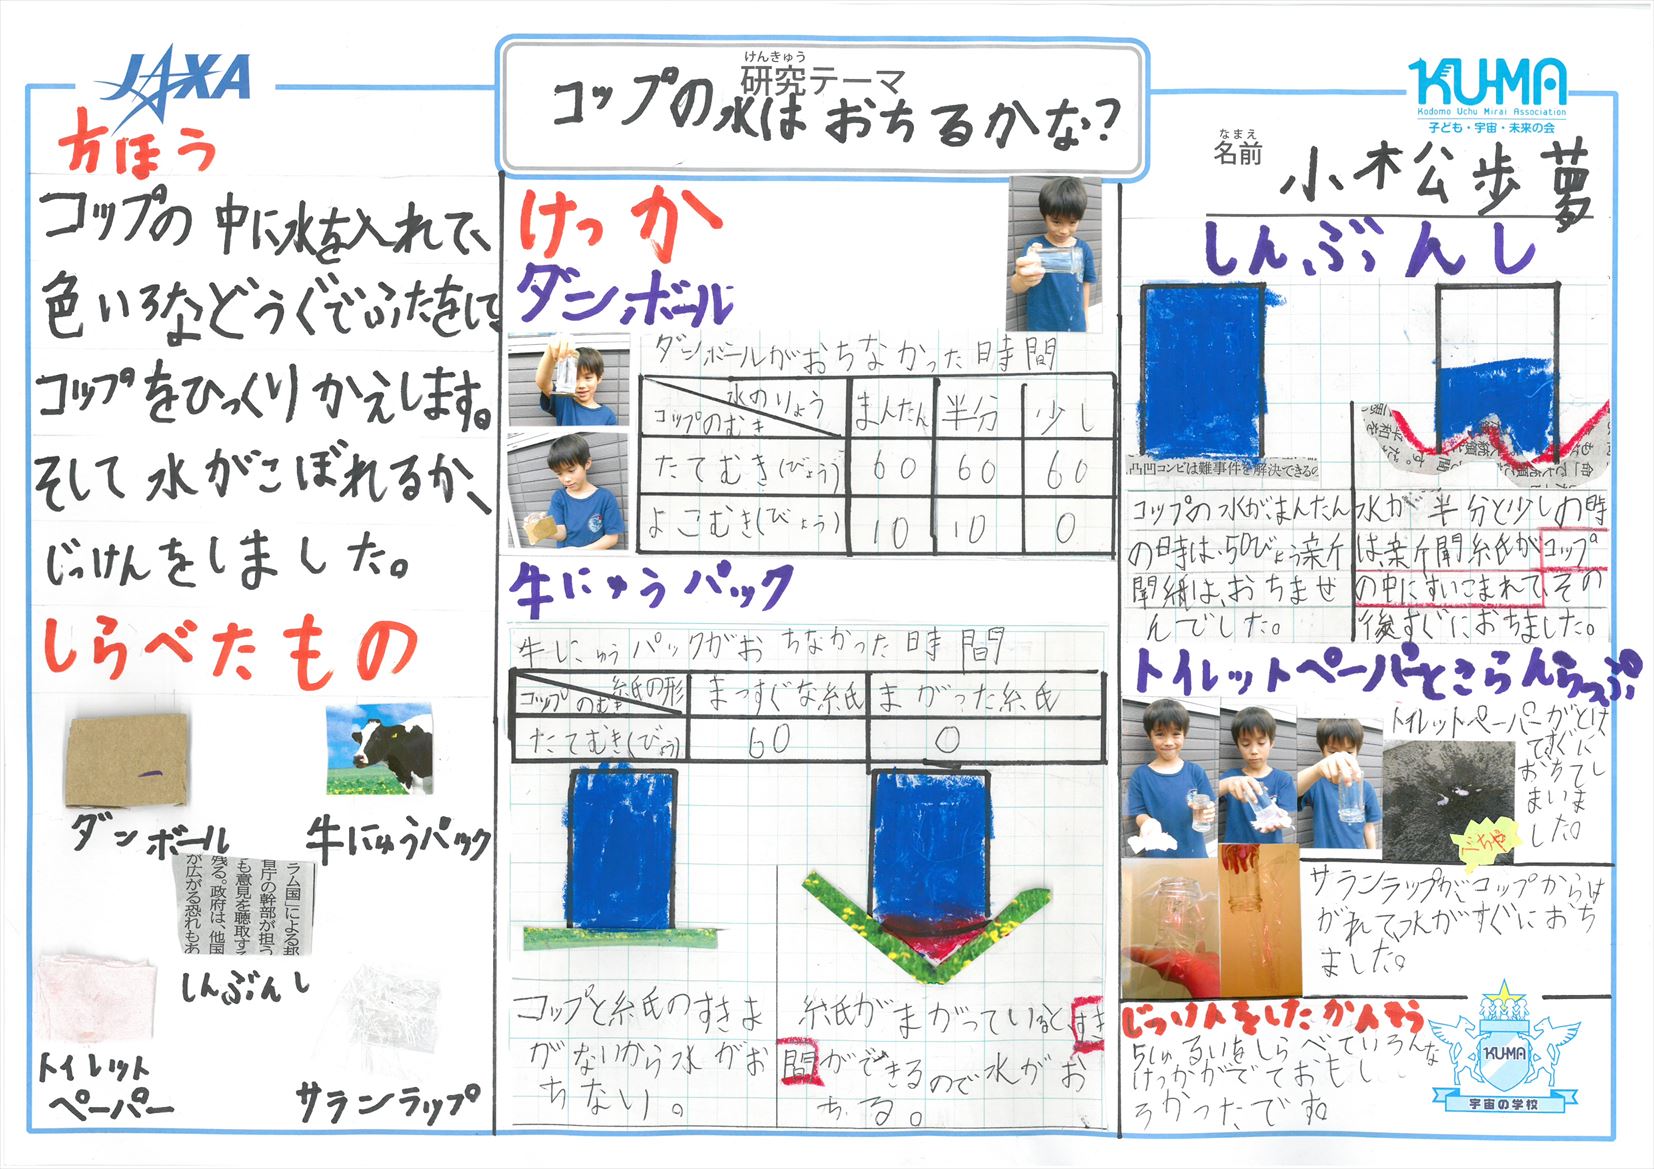 JAXA
けんきゅう
研究テーマ
コップの水はおちるかな?
KU-MA
Kodomo Uchu Mirai Association
子ども・宇宙・未来の会
なまえ
名前
小木公歩夢
方ほう
コップの中に水を入れて、
色いろなどうぐでふたをして、
コップをひっくりかえします。
そして水がこぼれるか、
じっけんをしました。
しらべたもの
ダンボール
牛にゅうパック
ラム国」による邦
官庁の幹部が担う
も意見を聴取する
残る。政府は、他国
が広がる恐れもあ
しんぶんし
トイレット
ペーパー
サランラップ
けっか
ダンボール
ダンボールがおちなかった時間
水のりょう
コップのむき
まんたん 半分 少し
たてむき(びょう) 60 60 60
よこむき(びょう) 10 10 0
牛にゅうパック
牛にゅうパックがおちなかった時間
紙の形
コップのむき
まっすぐな紙 まがった紙
たてむき(びょう) 60 0
コップと紙のすきま
がないから水がお
ちない。
紙がまがっていると、すき
間ができるので水がお
ちる。
しんぶんし
凸凹コンビは難事件を解決できるの
コップの水がまんたん
の時は、50びょう新
聞紙は、おちませ
んでした。
水が半分と少しの時
は、新聞紙がコップ
の中にすいこまれて、その
後すぐにおちました。
トイレットペーパーとさらんらっぷ
トイレットペーパーがとけ
てすぐに
おちてし
まいま
した。
べちゃ
サランラップがコップからは
がれて、水がすぐにおち
ました。
じっけんをしたかんそう
5しゅるいをしらべていろんな
けっかがでておもし
ろかったです。
KU-MA
宇宙の学校